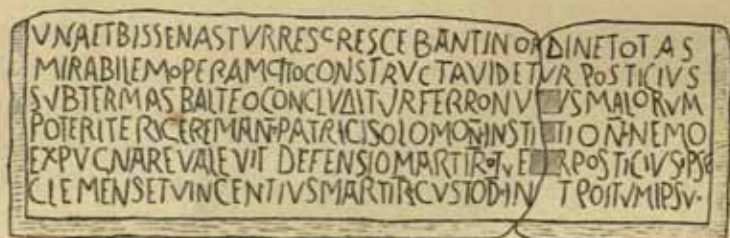 VNAETBISSENASTVRRESCRESCEBANTINORDINETOTAS
MIRABILEMOPERAMCITOCONSTRVCTAVIDETVRPOSTICIVS
SVBTERMASBALTEOCONCLVDITVRFERRONV VSMALORVM
POTERITERICEREMAN·PATRICISOLOMON·INSTI TION·NEMO
EXPVCNAREVALEVIT DEFENSIOMARTIR·TVE RPOSTICIVSIPSE
CLEMENSETVINCENTIVSMARTIRCVSTODIN TPOITVMIPSV·